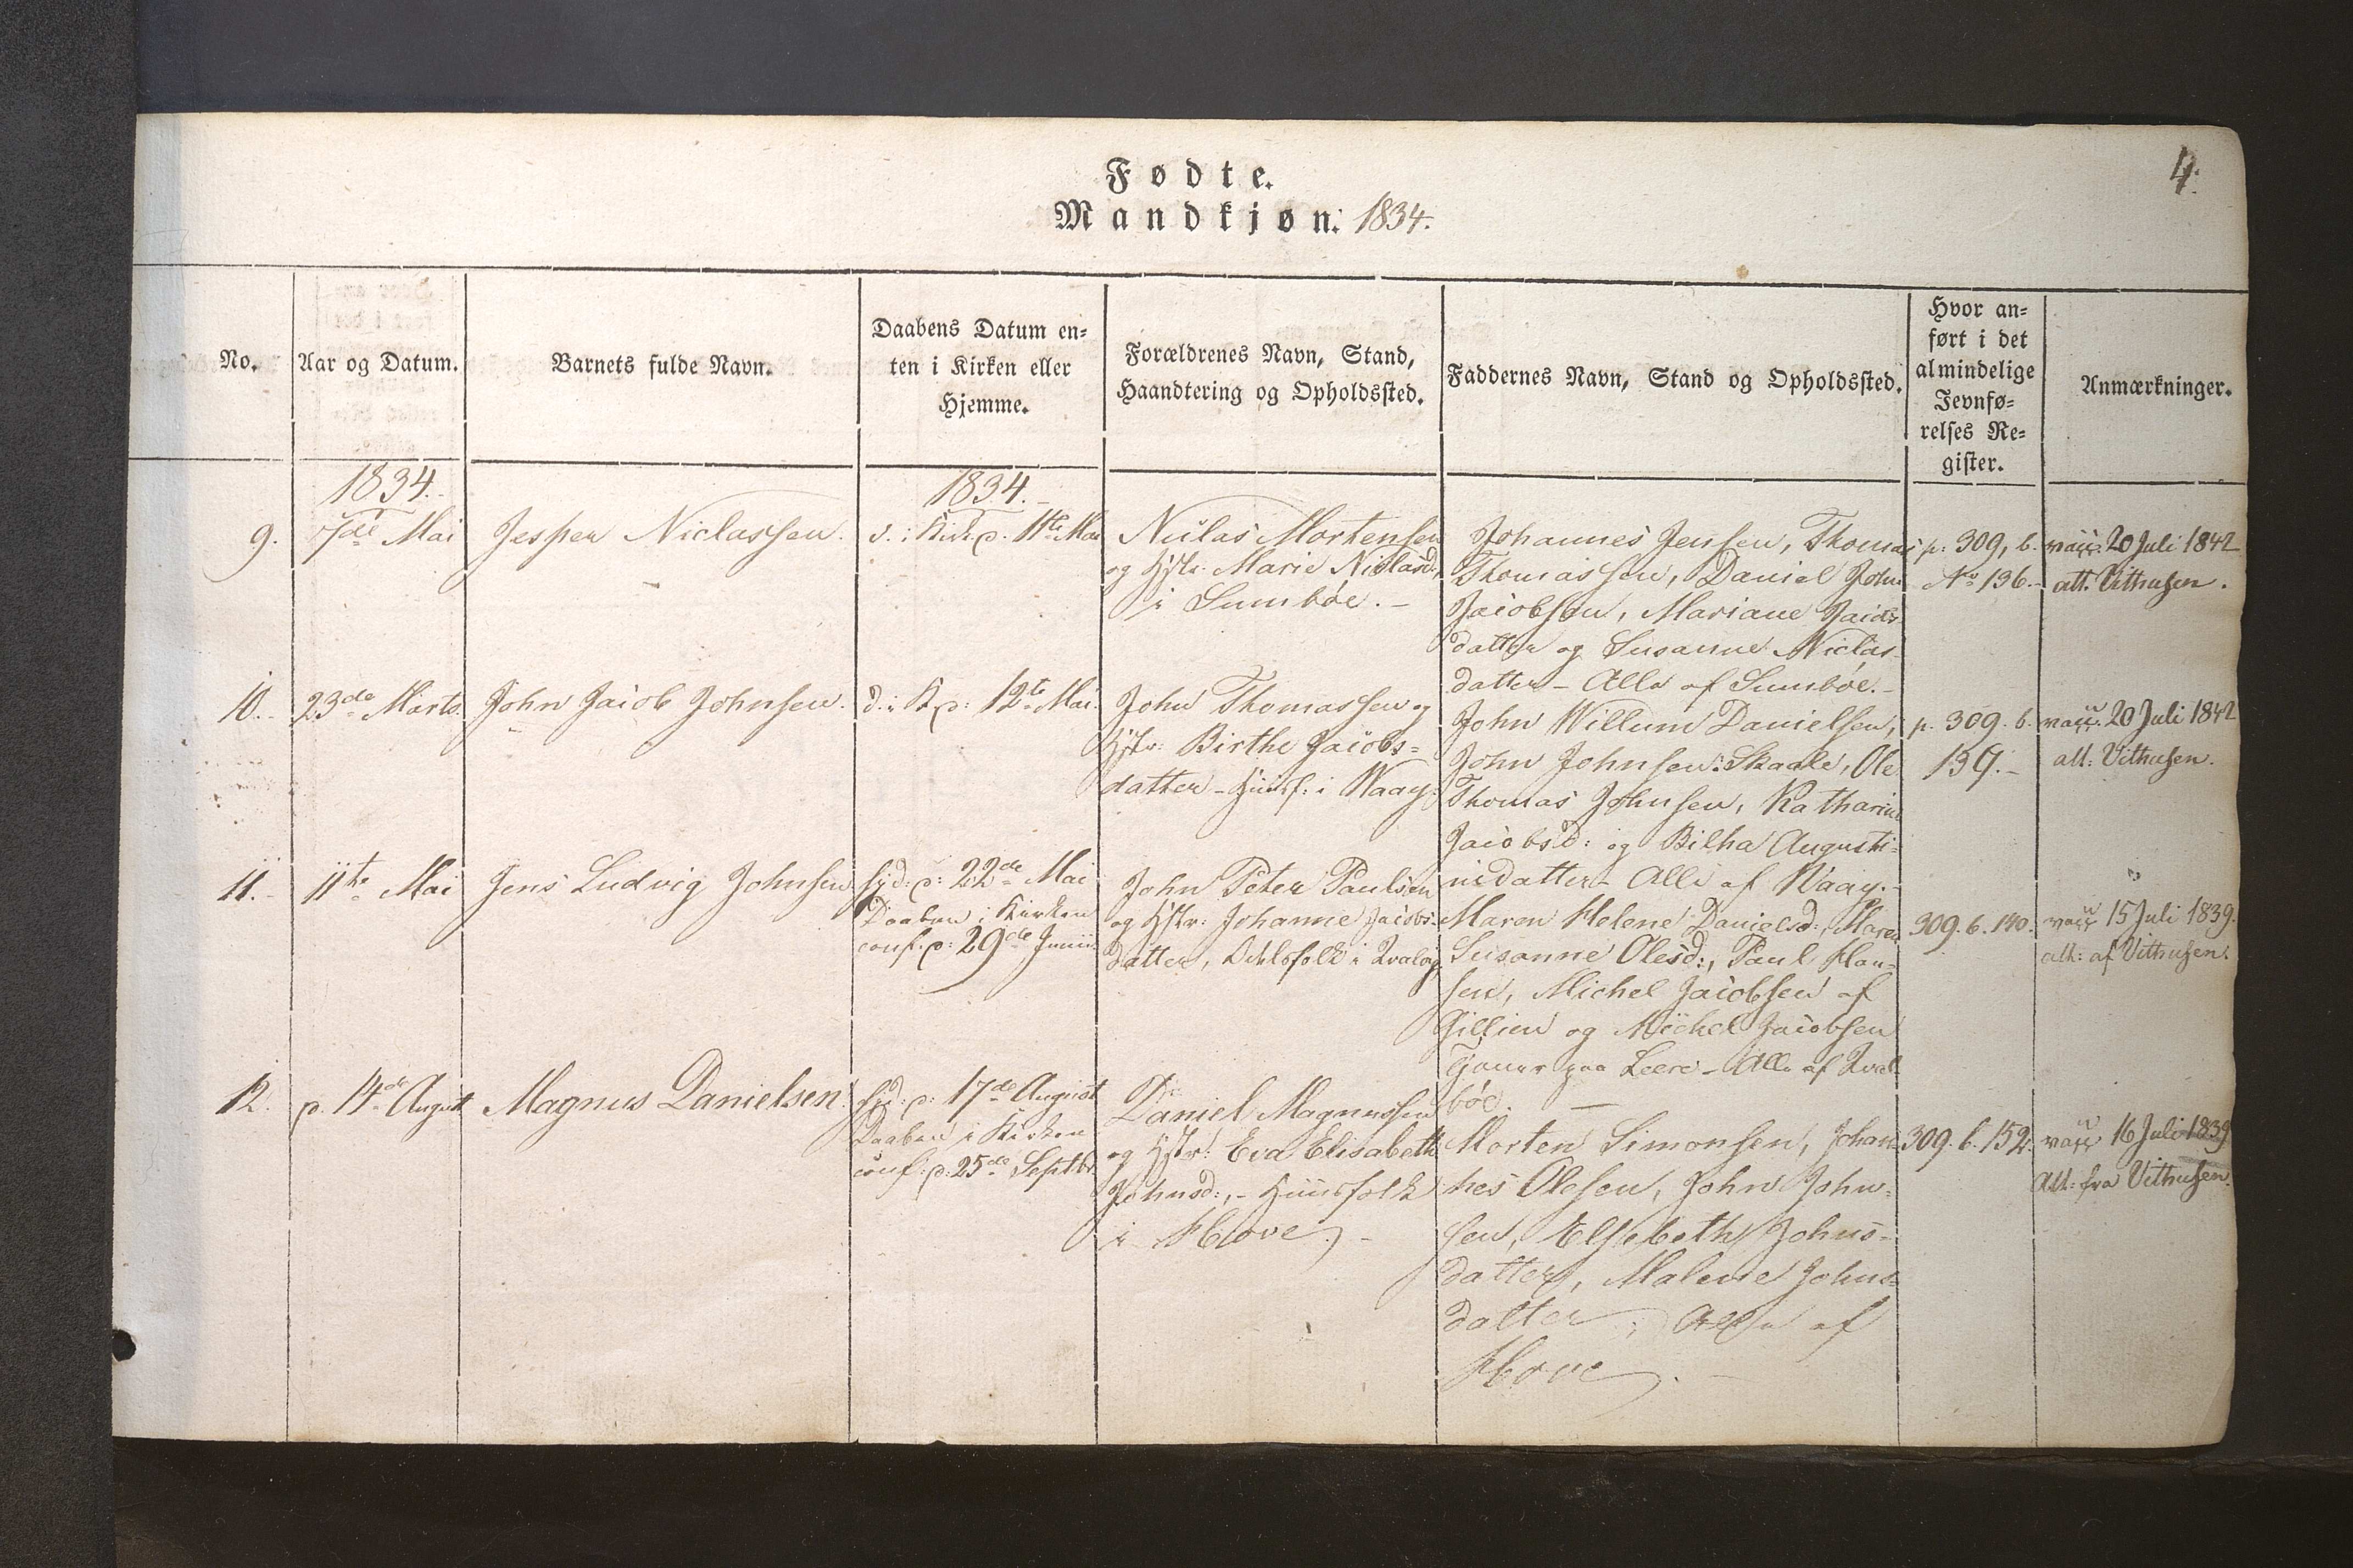 4.
Fødte.
Mandkjøn. 1834.
No.
Aar og Datum.
Barnets fulde Navn.
Daabens Datum en=
ten i Kirken eller
Hjemme.
Forældrenes Navn, Stand,
Haandtering og Opholdssted.
Faddernes Navn, Stand og Opholdssted.
Hvor an=
ført i det
almindelige
Jevnfø=
relses Re=
gister.
Anmærkninger.
1834.
1834.
9.
7de Mai
Jesper Niclassen.
d. i Kirk. d. 11te Mai
Niclas Mortensen
og Hstr. Marie Niclasd.
i Sumbøe. -
Johannes Jensen, Thomas
Thomassen, Daniel John
Jacobsen, Mariane Jacobs
datter og Susanne Niclas-
datter - Alle af Sumbøe. -
p. 309, b.
No 136. -
vacc. 20 Juli 1842
att. Vithusen.
10. -
23de Marts.
John Jacob Johnsen.
d. i K. d: 12te Mai.
John Thomassen og
Hstr: Birthe Jacobs=
datter - Huusf: i Waag.
John Willum Danielsen,
John Johnsen Skaale, Ole
Thomas Johnsen, Katharine
Jacobsd: og Bilha Augusti=
nidatter - Alle af Waag. -
p. 309. b.
139. -
vacc. 20 Juli 1842
att: Vithusen.
11. -
11te Mai
Jens Ludvig Johnsen
Hjd: d: 22de Mai
Daaben i Kirken
conf. d: 29de Junii.
John Peter Paulsen
og Hstr: Johanne Jacobs=
datter, i Qvalbø
Maren Helene Danielsd:, Maren
Susanne Olesd:, Paul Han=
sen, Michel Jacobsen af
og Michel Jacobsen
paa - Alle af Qval
bøe. -
309. b. 140.
vacc 15 Juli 1839.
att: af Vithusen.
12.
d. 14de August
Magnus Danielsen.
Hjd: d: 17de August
Daaben i Kirken
conf: d: 25de Septbr.
Daniel Magnussen
og Hstr: Eva Elisabeth
Johnsd:, - Huusfolk
i Hove. -
Morten Simonsen, Johan
nes Olesen, John John=
sen, Elsebeth Johns=
datter, Malene Johns=
datter; Alle af
Hove.
309. b. 152.
vacc 16 Juli 1839
Att: fra Vithusen.